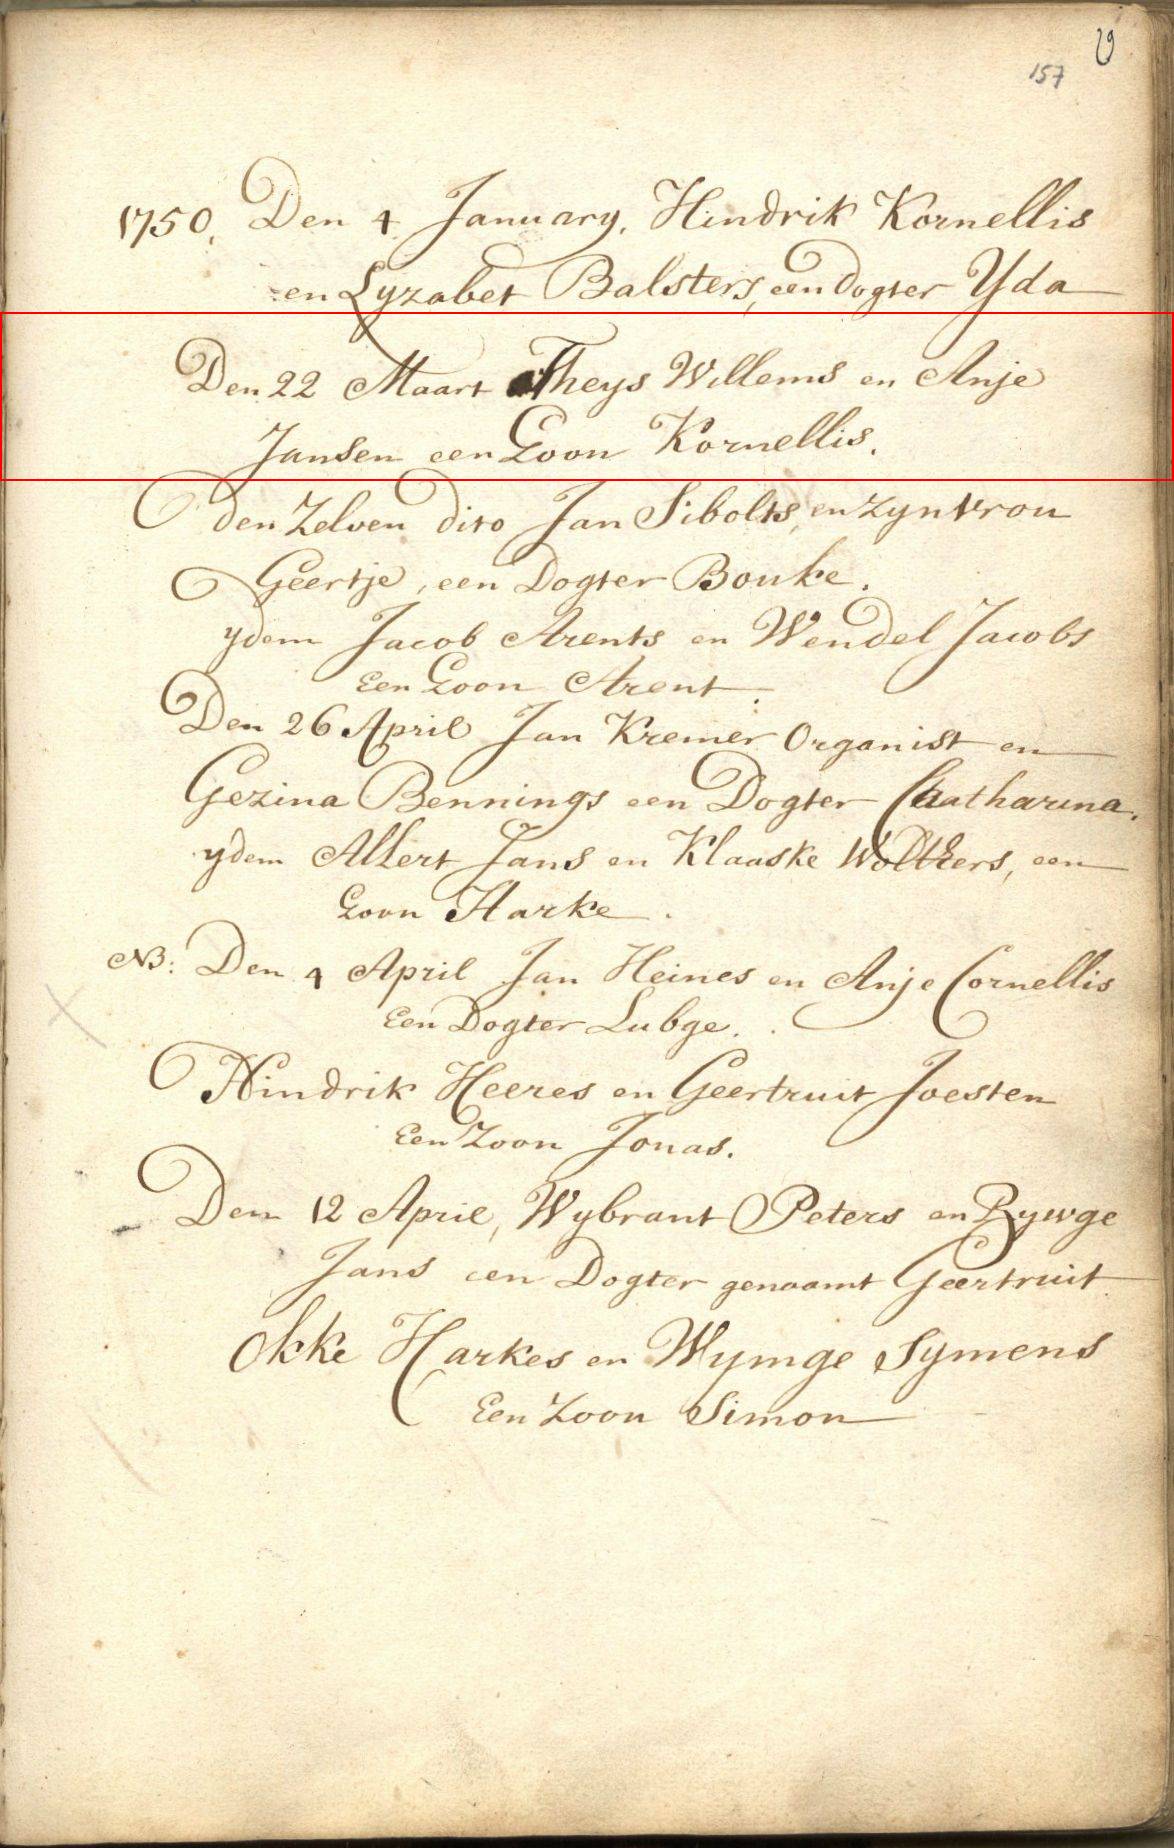 29
157
1750. Den 4 January, Hindrik Kornellis
en Lyzabet Balsters, een dogter Yda
Den 22 Maart Theys Willems en Anje
Jansen een Zoon Kornellis.
den Zelven dito Jan Sibolts, en zyn vrou
Geertje, een Dogter Bouke.
ydem Jacob Arents en Wendel Jacobs
Een Zoon Arent.
Den 26 April Jan Kremer Organist en
Gezina Bennings een Dogter Chatharina.
ydem Allert Jans en Klaaske Wolthers, een
Zoon Harke.
NB: Den 4 April Jan Heines en Anje Cornellis
Een Dogter Lubge.
Hindrik Heeres en Geertruit Joesten
Een Zoon Jonas.
Den 12 April, Wybrant Peters en Rywge
Jans een Dogter genaamt Geertruit
Okke Harkes en Wymge Symens
Een Zoon Simon